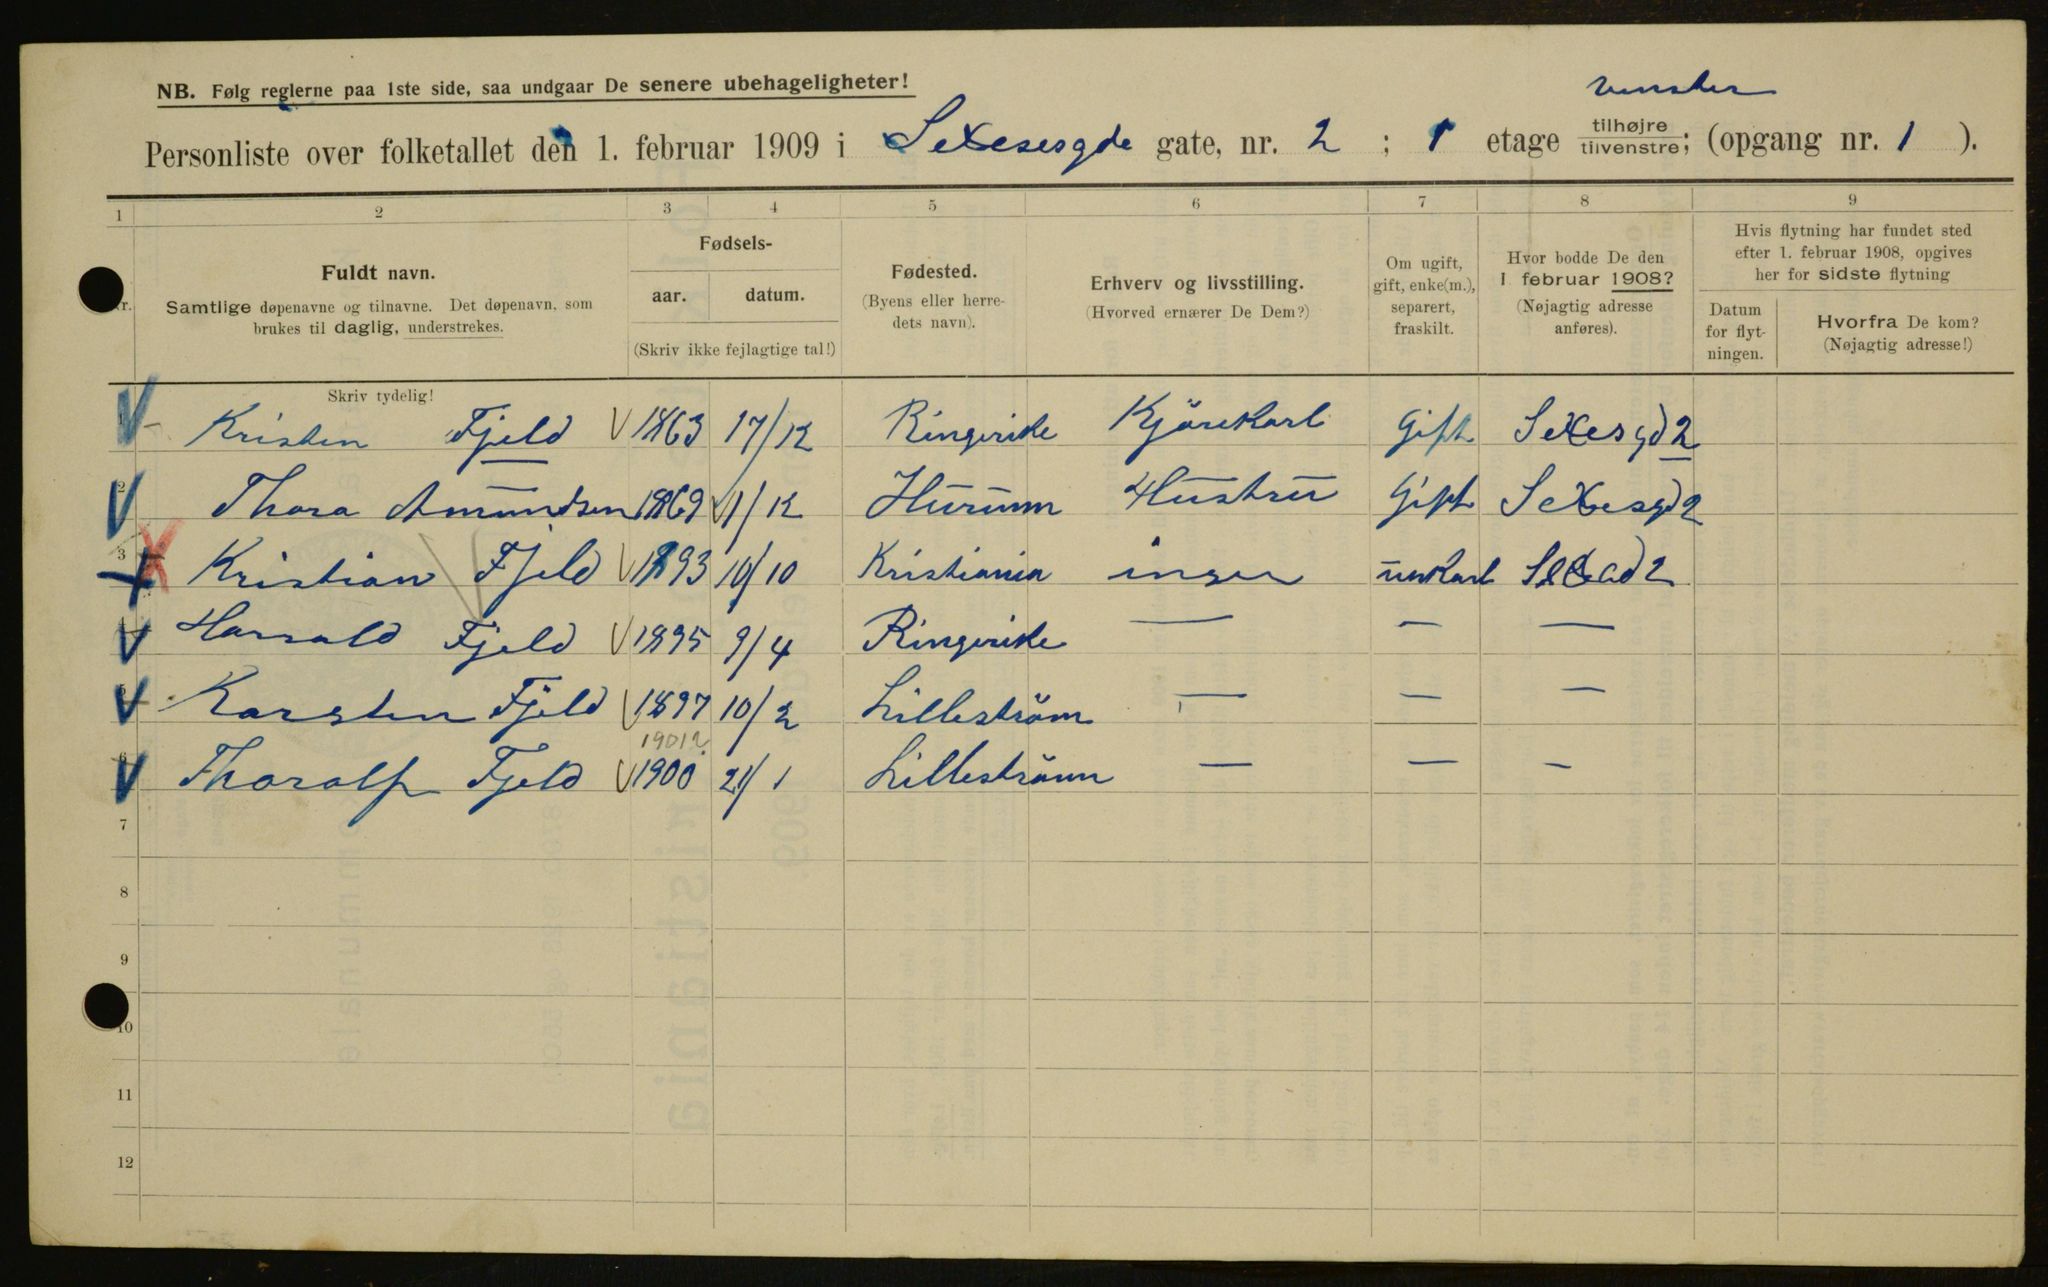 venster
NB. Følg reglerne paa 1ste side, saa undgaar De senere ubehageligheter!
Personliste over folketallet den 1. februar 1909 i Sexesesgde gate, nr. 2 ; 1 etage tilhøjre tilvenstre; (opgang nr. 1 ).
1 2 3 4 5 6 7 8 9
Nr.
Fuldt navn.
Samtlige døpenavne og tilnavne. Det døpenavn, som
brukes til daglig, understrekes.
Fødsels-
aar. datum.
(Skriv ikke fejlagtige tal!)
Fødested.
(Byens eller herre-
dets navn).
Erhverv og livsstilling.
(Hvorved ernærer De Dem?)
Om ugift,
gift, enke(m.),
separert,
fraskilt.
Hvor bodde De den
1 februar 1908?
(Nøjagtig adresse
anføres).
Hvis flytning har fundet sted
efter 1. februar 1908, opgives
her for sidste flytning
Datum
for flyt-
ningen.
Hvorfra De kom?
(Nøjagtig adresse!)
Skriv tydelig!
1 Kristen Fjeld 1863 17/12 Ringerike Kjörekarl Gift Sexesgd 2
2 Thora Amundsen 1869 1/12 Hurum Hustru Gift Sexesgd 2
3 Kristian Fjeld 1893 10/10 Kristiania ingen unkarl 2
4 Harald Fjeld 1895 9/4 Ringerike — — —
5 Karsten Fjeld 1897 10/2 Lilleström — — —
1901?
6 Thoralf Fjeld 1900 21/1 Lilleström — — —
7
8
9
10
11
12